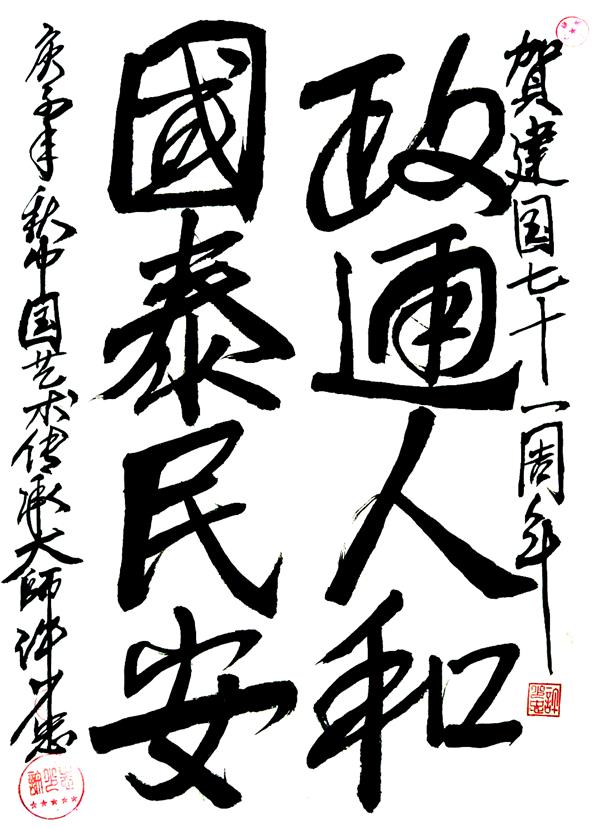 賀建国七十一周年
政通人和
國泰民安
庚子年秋中国艺术传承大师